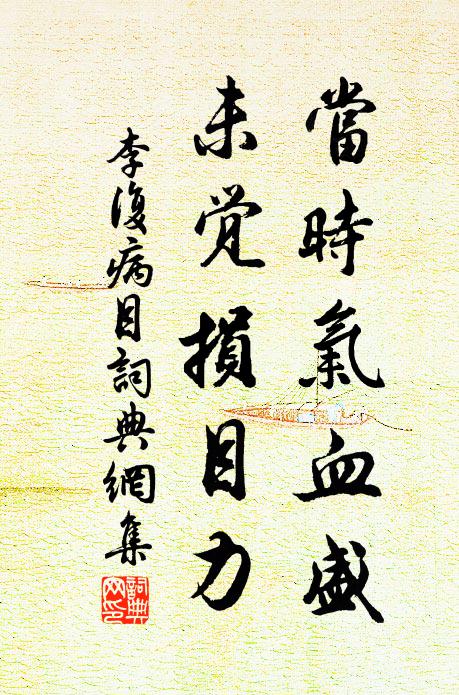 當時氣血盛
未覚損目力
李復病目詞典網集
詞典網印